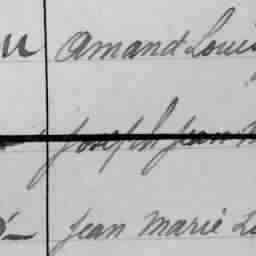 u Amand Louis
Joseph Jean M
Jean Marie L